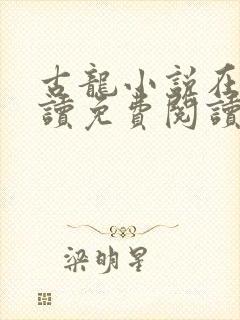 古龍小説在
讀免費閱讀
梁明星